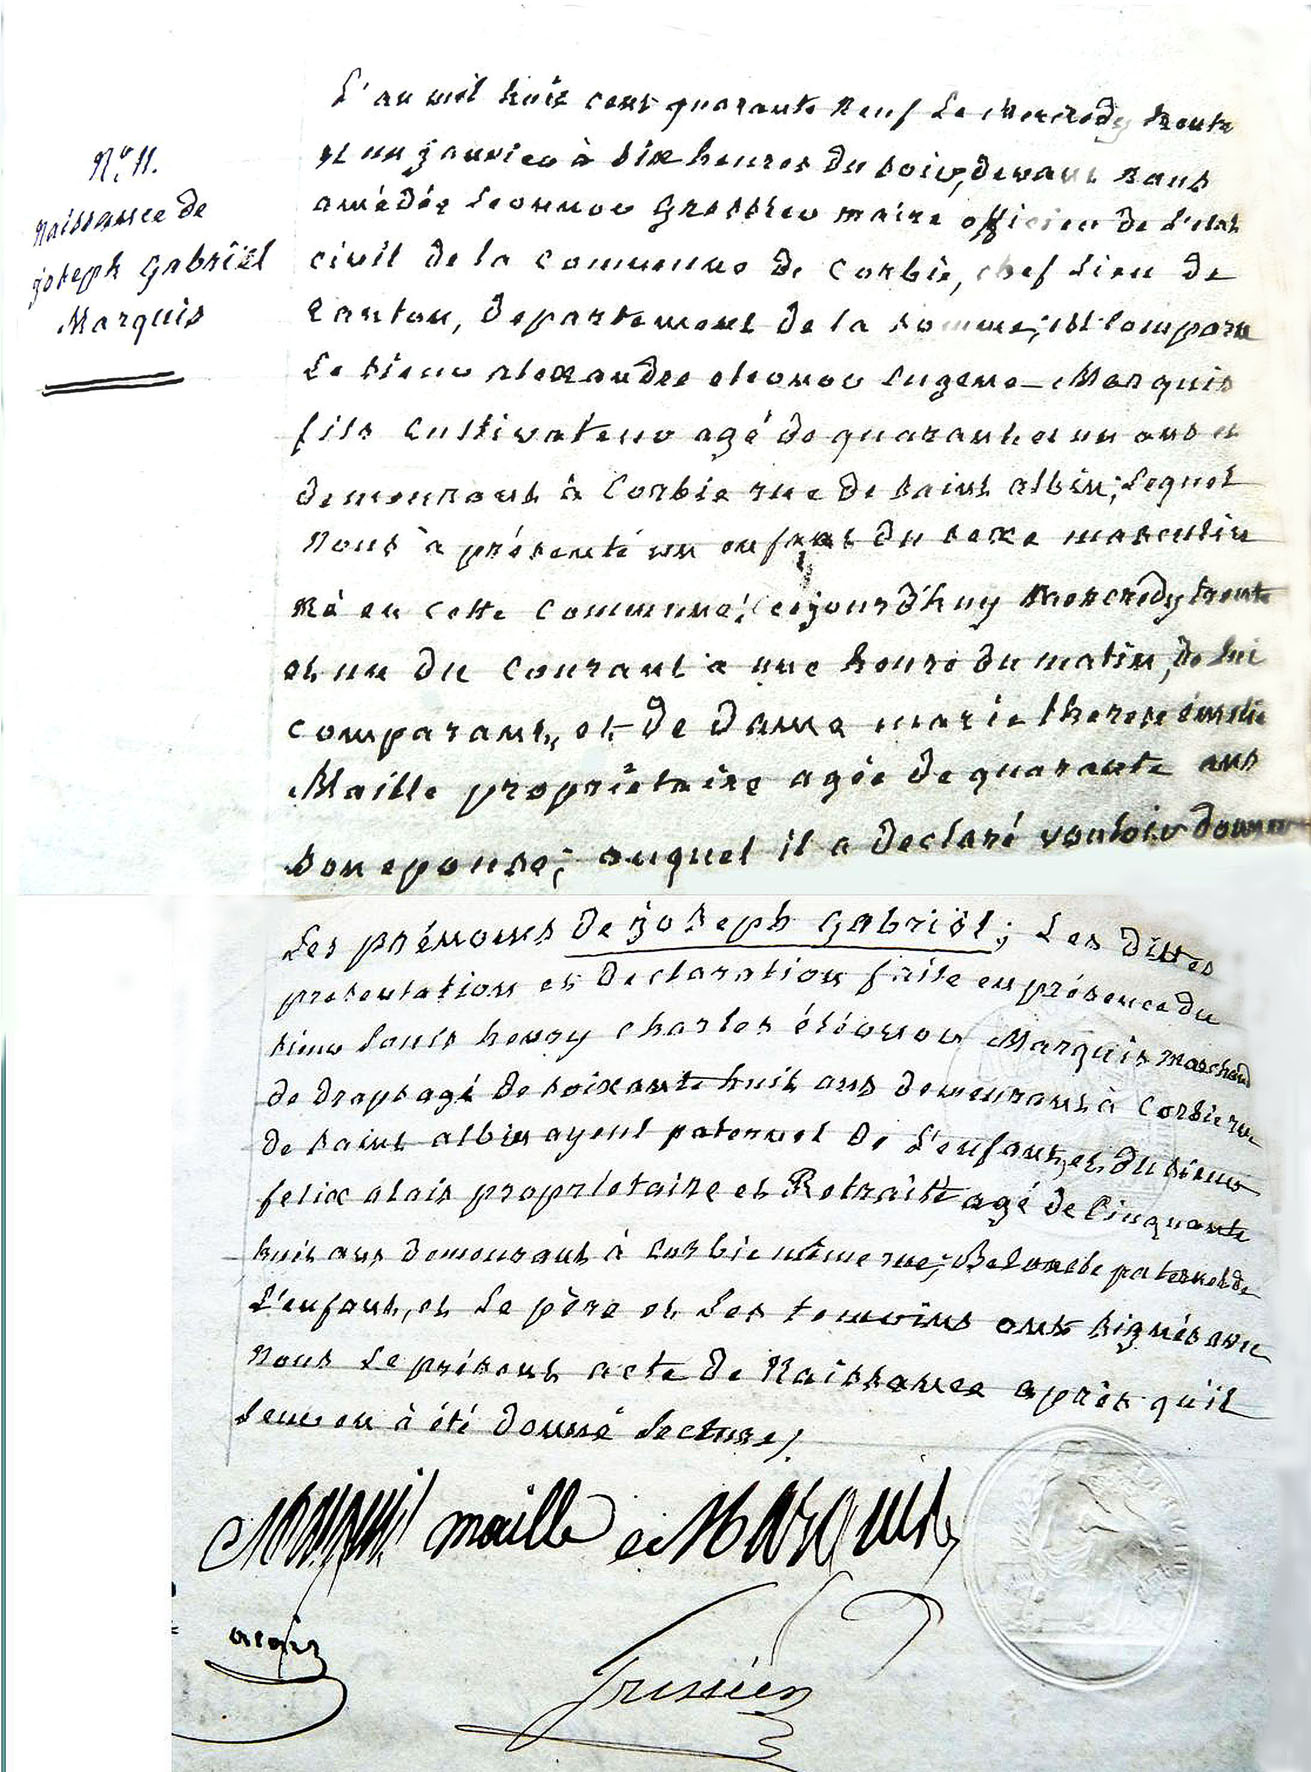 N.º 11.
Naissance de
joseph Gabriël
Marquis
L'an mil huit cent quarante neuf Le Mercredy trente
et un janvier à six heures du soir, devant nous
amédée Leonnor Gressier maire officier de L'état
civil de la Commune de Corbie, chef Lieu de
Canton, département de la Somme; est Comparu
Le Sieur alexandre eleonor Eugene Marquis
fils Cultivateur agé de quarante et un ans et
demeurant à Corbie rue de Saint albin; Lequel
Nous à présenté un enfant du sexe masculin
Né en cette Commune, cejourd'huy Mercredy trente
et un du Courant à une heure du matin, de lui
comparant, et de Dame marie therese émelie
Maille propriètaire agée de quarante ans
son epouse; auquel il a declaré vouloir donner
Les prénoms de joseph Gabriël; Les dittes
presentation et declaration faite en présence du
sieur Louis henry charles éléonor Marquis Marchand
de draps agé de soixante huit ans demeurant à Corbie rue
de Saint albin ayeul paternel de L'enfant, et du sieur
felix alais propriétaire et Retraitté agé de Cinquante
huit ans demeurant à Corbie même rue; Bel oncle paternel de
L'enfant, et Le père et Les temoins ont signés avec
Nous Le présent acte de Naissance après qu'il
Leur en à été donné Lecture/.
Marquis maille
Marquis
Gressier